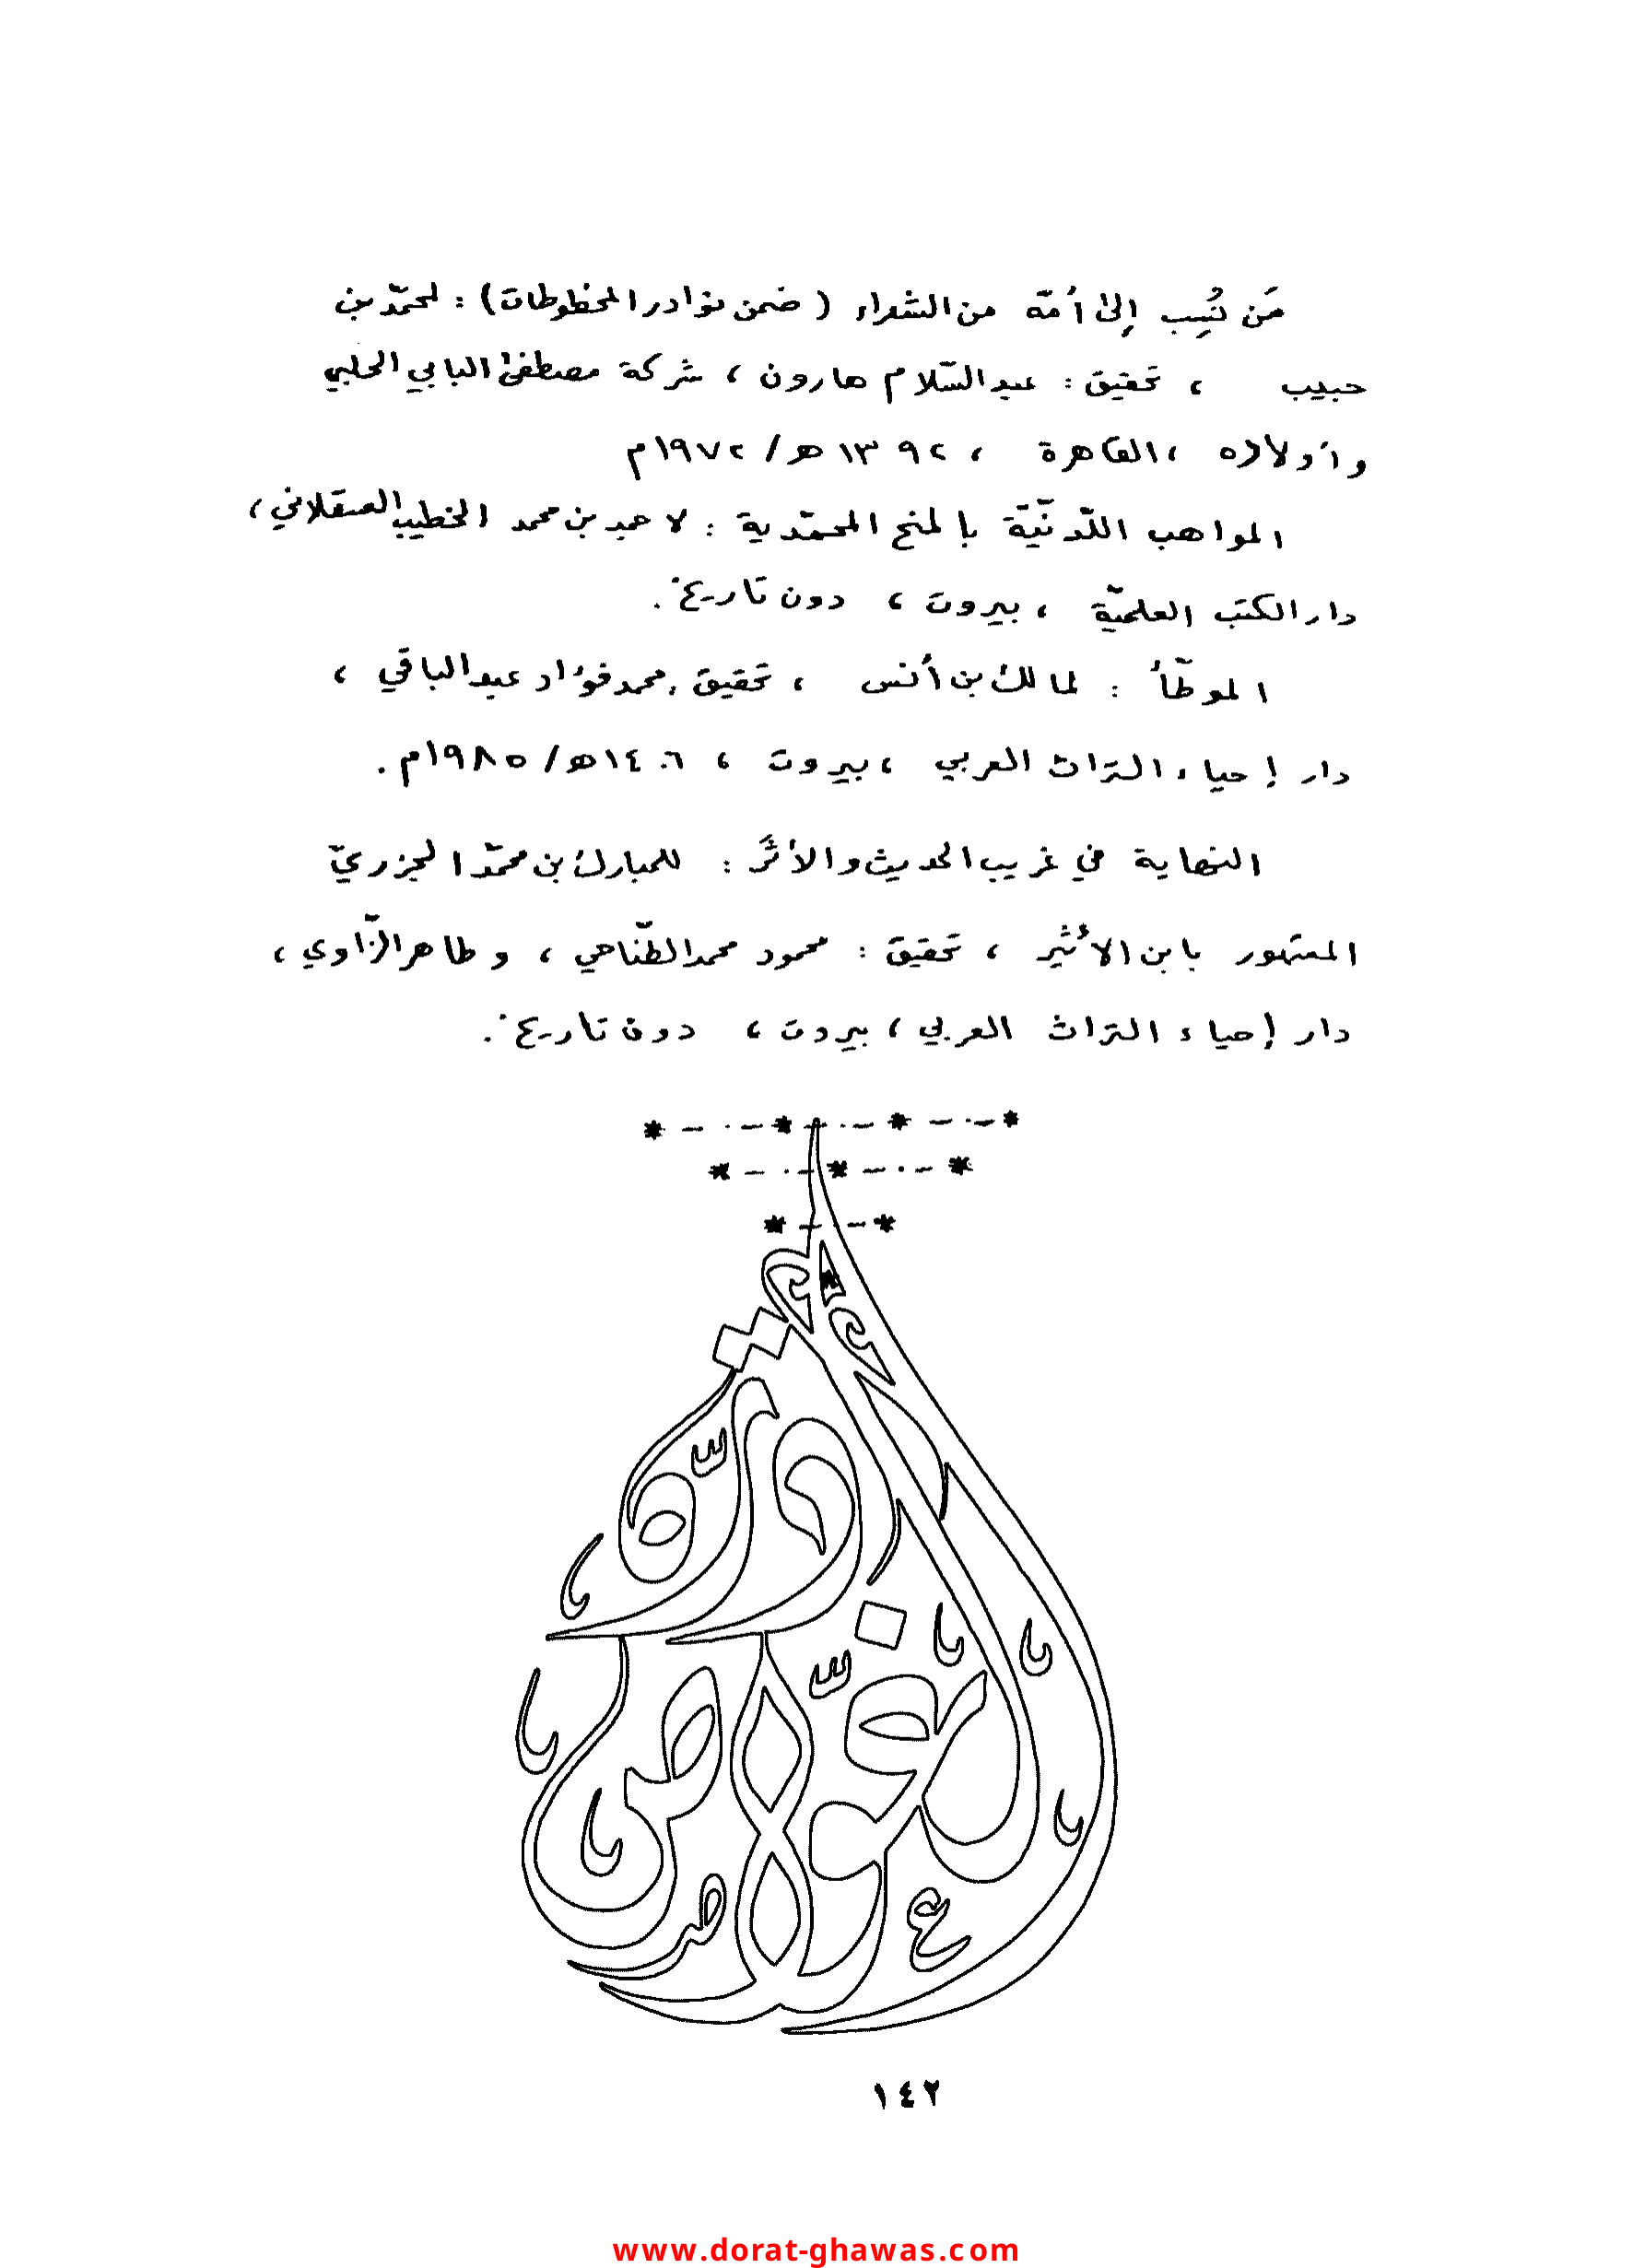 مَن نُسِب إلىٰ أُمّه من الشعراء (ضمن نوادر المخطوطات): لمحمّد بن
حبيب ، تحقيق: عبد السّلام هارون ، شركة مصطفىٰ البابي الحلبي
وأولاده ، القاهرة ، ١٣٩٢هـ/١٩٧٢م
المواهب اللّدنّيّة بالمنح المحمّدية : لأحمد بن محمد الخطيب العسقلاني ،
دار الكتب العلميّة ، بيروت ، دون تاريخ .
الموطّأ : لمالك بن أنس ، تحقيق : محمد فؤاد عبد الباقي ،
دار إحياء التراث العربي ، بيروت ، ١٤٠٦هـ/١٩٨٥م .
النهاية في غريب الحديث والأثر : للمبارك بن محمّد الجزريّ
المشهور بابن الأثير ، تحقيق : محمود محمد الطّناحي ، وطاهر الزّاوي ،
دار إحياء التراث العربي ، بيروت ، دون تاريخ .
*-·-*-·-*-·-*
*-·-*-·-*
*-·-*
درّة الغوّاص
١٤٢
www.dorat-ghawas.com